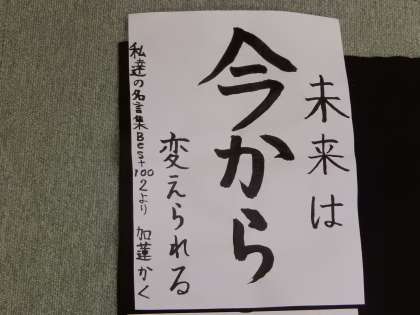 未来は
今から
変えられる
私達の名言集Best1002より 加蓮かく